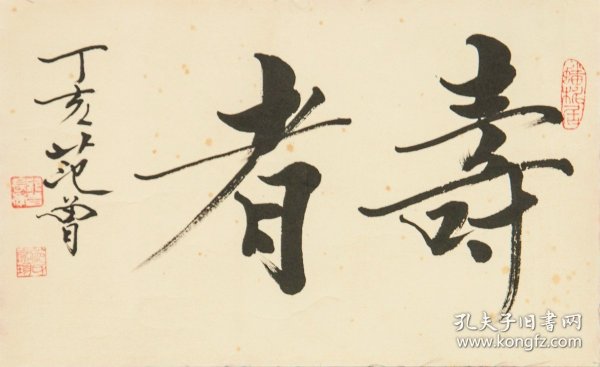 壽者
丁亥范曾
孔夫子旧书网
www.kongfz.com